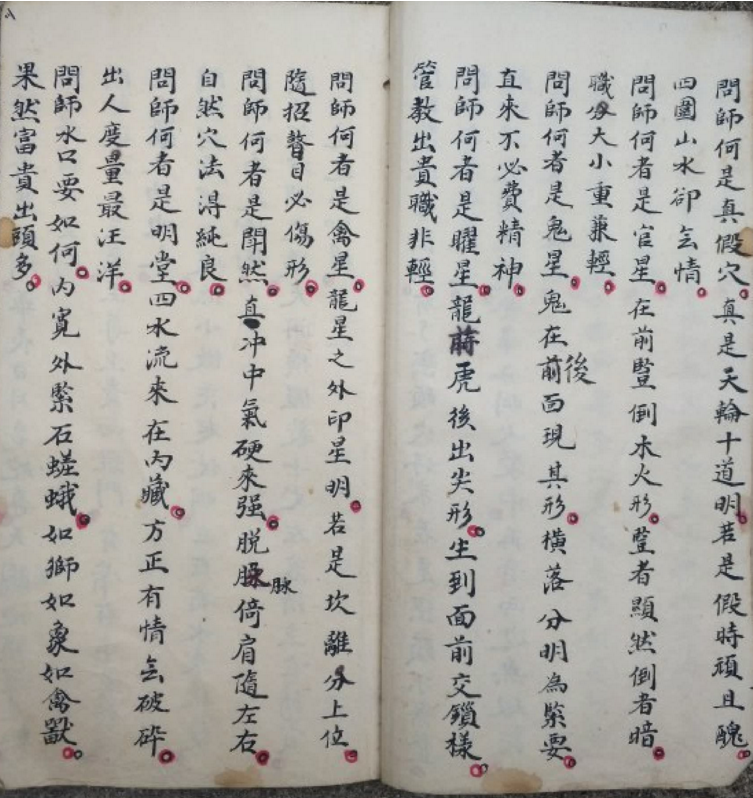 問師何是真假穴真是天輪十道明若是假時頑且醜
四圍山水卻無情
問師何者是官星在前豎倒木火形豎者顯然倒者暗
職分大小重兼輕
問師何者是鬼星鬼在前後面現其形橫落分明為緊要
直來不必費精神
問師何者是曜星龍蒔虎後出尖形生到面前交鎖樣
管教出貴職非輕
問師何者是禽星龍星之外印星明若是坎離分上位
隨招瞽目必傷形
問師何者是閗然直冲中氣硬來强脱脉倚肩隨左右
自然穴法淂純良
問師何者是明堂四水流來在內藏方正有情無破碎
出人度量最汪洋
問師水口要如何內寬外緊石嵯峨如獅如象如禽獸
果然富貴出頭多